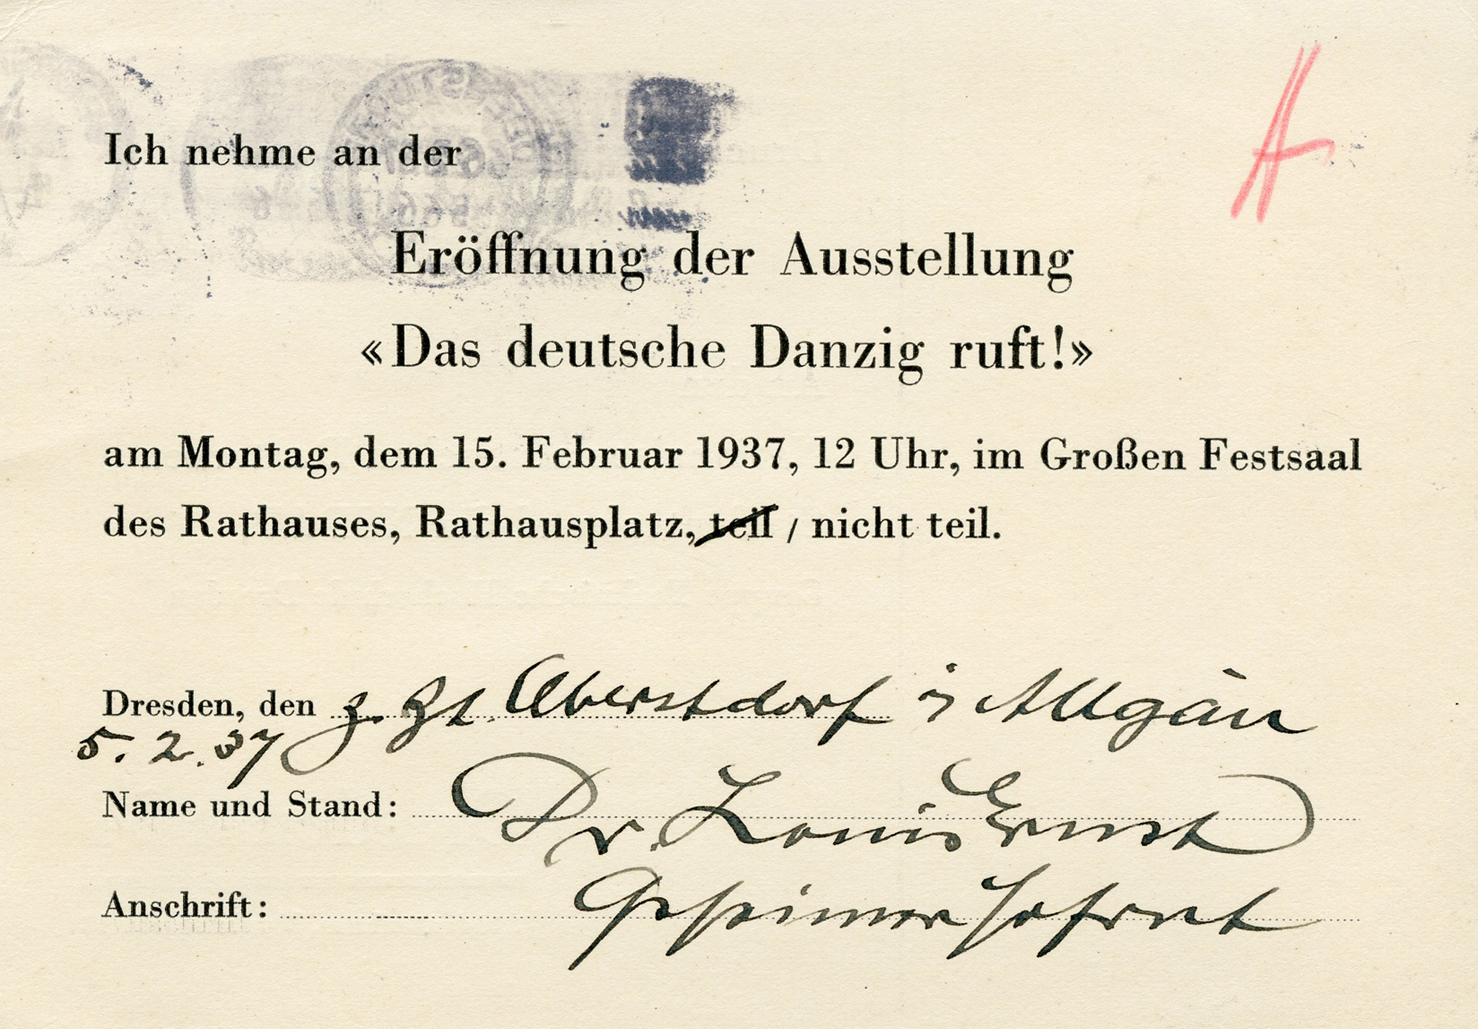 A
Ich nehme an der
Eröffnung der Ausstellung
«Das deutsche Danzig ruft!»
am Montag, dem 15. Februar 1937, 12 Uhr, im Großen Festsaal
des Rathauses, Rathausplatz, teil / nicht teil.
Dresden, den z. Zt. Oberstdorf i Allgäu
5. 2. 37
Name und Stand: Dr. Louis Ernst
Anschrift: Geheimer Hofrat